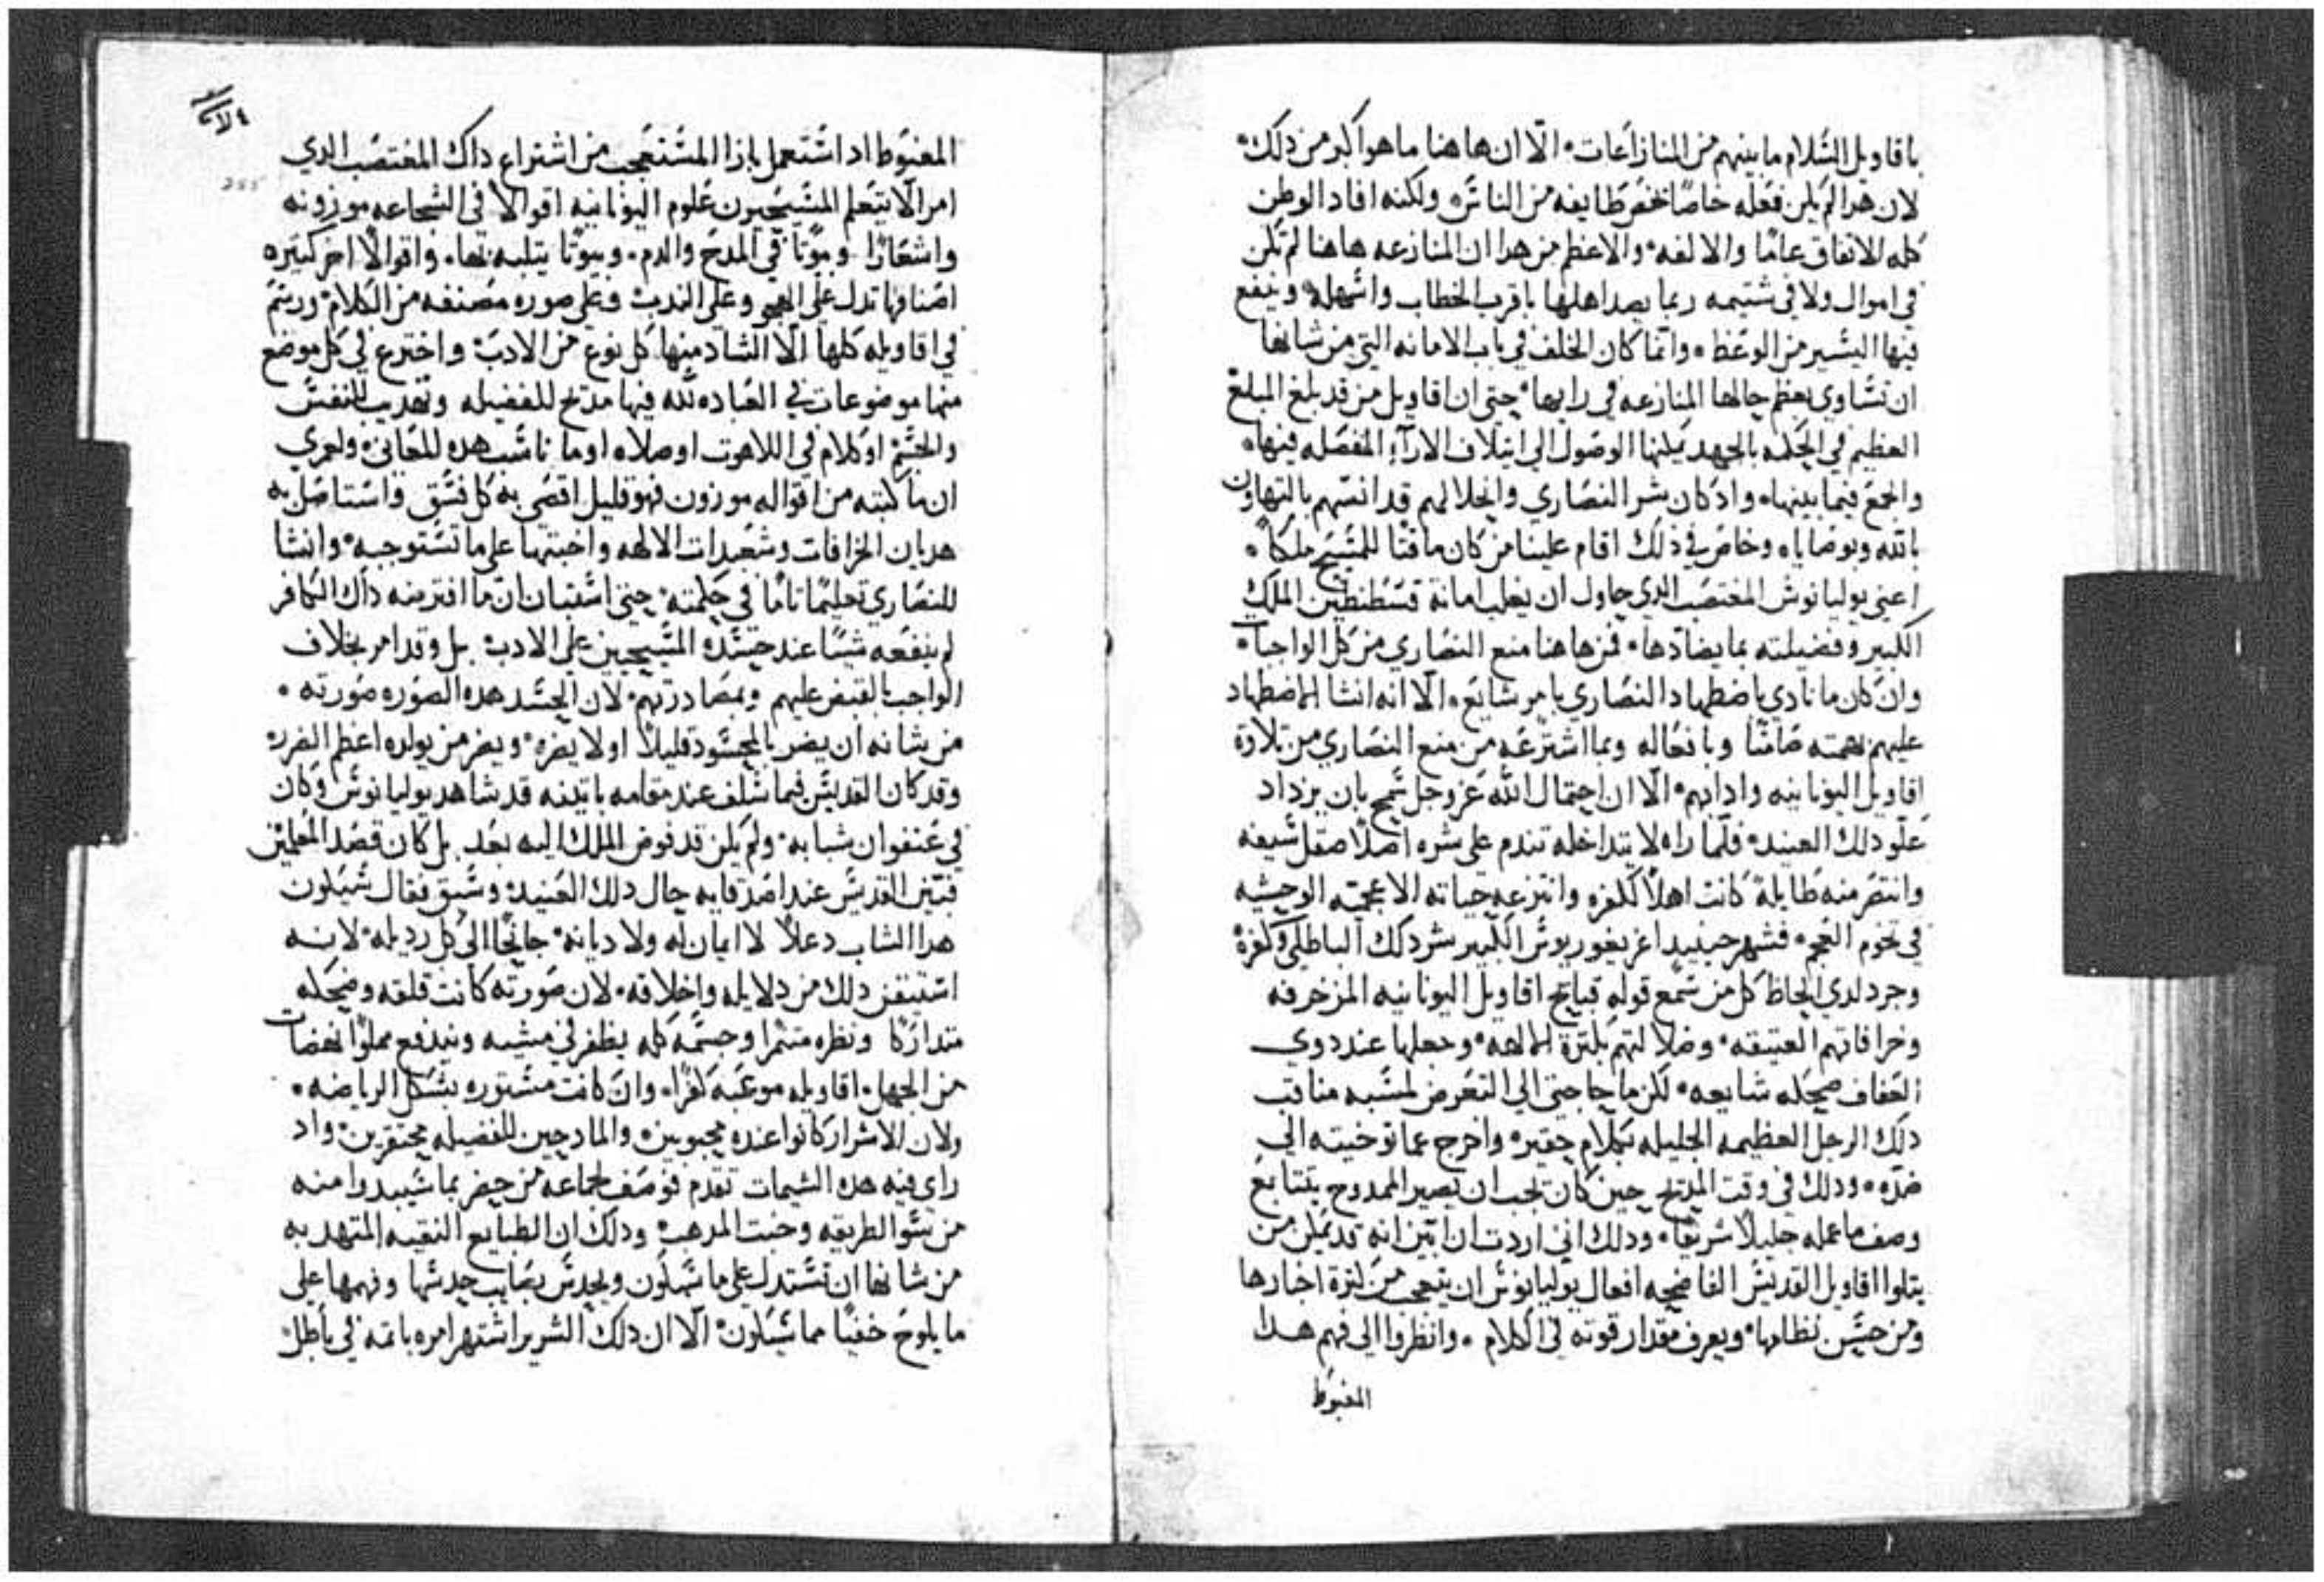 باقاويل السلام ما بينهم من المنازاعات الا ان هاهنا ما هو اكبر من دلك
لان هدا لم يكن فعله خاصا يخص طايفه من الناس ولكنه افاد الوطن
كله الاتفاق عاما والالفه والاعظم من هدا ان المنازعه هاهنا لم تكن
في اموال ولا في شتيمه ربما يصد اهلها باقرب الخطاب واسهله وينفع
فيها اليسير من الوعظ وانما كان الخلف في باب الامانه التي من شانها
ان تساوي بعظم حالها المنازعه في رايها حتى ان اقاويل من قد بلغ المبلغ
العظيم في الحكمه بالجهد يمكنها الوصول الي ايتلاف الارآء المفصله فيها
والجمع فيما بينها وادكان شر النصاري وانحلالهم قد انسهم بالتهاون
بالله وبوصاياه وخاض في ذلك اقام علينا من كان ماقتا للمسيح ملكا
اعني يوليانوس المغتصب الدي حاول ان يغلب امانة قسطنطين الملك
الكبير وفضيلته بما يضادها فمن هاهنا منع النصاري من كل الواجبات
وان كان ما نادي باضطهاد النصاري بامر شايع الا انه انشا الاضطهاد
عليهم بهمته صامتا وبافعاله وبما اشترعه من منع النصاري من تلاوة
اقاويل اليونانيه وادابهم الا ان احتمال الله عز وجل سمح بان يزداد
علو دلك العنيد فلما راه لا يتداخله تندم على شره اصلا صقل سيفه
وانتقم منه طايلة كانت اهلا لكفره وانتزعه حياته الاعجميه الوحشيه
في تخوم العجم فشهر حينيد اغريغوريوس الكبير شر دلك الباطلي وكفرة
وجرد لدي الحاظ كل من سمع قوله قبايح اقاويل اليونانيه المزخرفه
وخرافاتهم العتيقه وضلالتهم بكثرة الالهه وجعلها عند دوي
العفاف ضحكه شايعه لكن ما حاجتي الي التعرض لمسبه مناقب
دلك الرجل العظيمه الجليله بكلام حقير واخرج عما توخيته الي
ضده ودلك في وقت المديح حين كان يجب ان يصير الممدوح بتتابع
وصف ما عمله جليلا شريفا ودلك اني اردت ان ابين انه قد يمكن من
يتلوا اقاويل القديس الفاضحه افعال يوليانوس ان يتعجب من كثرة اخبارها
ومن حسن نظامها ويعرف مقدار قوته في الكلام وانظروا الي فهم هدا
المغبوط
المغبوط اد استعمل بازا المستعجب من اشتراع داك المغتصب الدي
امر الا يتعلم المسيحيون علوم اليونانيه اقوالا في الشجاعه موزونه
واشعارا وبيوتا في المدح والدم وبيوتا يتلبه بها واقوالا اخر كثيره
اصنافها تدل على الهجو وعلى الندب وعلى صوره مصنفه من الكلام ورسم
في اقاويله كلها الا الشاد منها كل نوع من الادب واخترع في كل موضع
منها موضوعات في العباده لله فيها مديح للفضيله وتهديب للنفس
والجسم او كلام في اللاهوت او صلاه او ما ناسب هده المعاني ولعمري
ان ما كتبه من اقواله موزون فهو قليل اقصي به كل فسق واستاصل به
هديان الخرافات وشعبدات الالهه واخبتها على ما تستوجبه وانشا
للنصاري تعليما تاما في حكمته حتى استبان ان ما افترضه داك الكافر
لم ينفعه شيئا عند حسده المسيحيين على الادب بل وقد امر بخلاف
الواجب بالقبض عليهم وبمصادرتهم لان الحسد هده الصوره صورته
من شانه ان يضر بالمحسود قليلا او لا يضره ويضر من يولده اعظم الضرر
وقد كان القديس فيما سلف عند مقامه باتينه قد شاهد يوليانوس وكان
في عنفوان شبابه ولم يكن قد فوض الملك اليه بعد بل كان قصد المعلمين
فتبين القديس عند اصدقايه حال دلك العنيد وسبق فقال سيكون
هدا الشاب دعلا لا ايمان له ولا ديانه جانحا الي كل رديله لانه
استيقن دلك من دلايله واخلاقه لان صورته كانت قلقه وضحكه
متداركا ونظره متنمرا وجسمه كله يظفر في مشيه ويندفع مملوا نهضات
من الجهل اقاويله موعبه كفرا وان كانت مستوره بشكل الرياضه
ولان الاشرار كانوا عنده محبوبين والمادحين للفضيله محتقرين واد
راي فيه هده الشيمات تقدم فوصف لجماعه من حضر بما سيبدوا منه
من سو الطريقه وخبت المدهب ودلك ان الطبايع النقيه المتهدبه
من شانها ان تستدل على ما سيكون ويحدس بصايب حدسها وفهمها على
ما يلوح خفيا مما سيكون الا ان دلك الشرير اشتهر امره باته في باطل